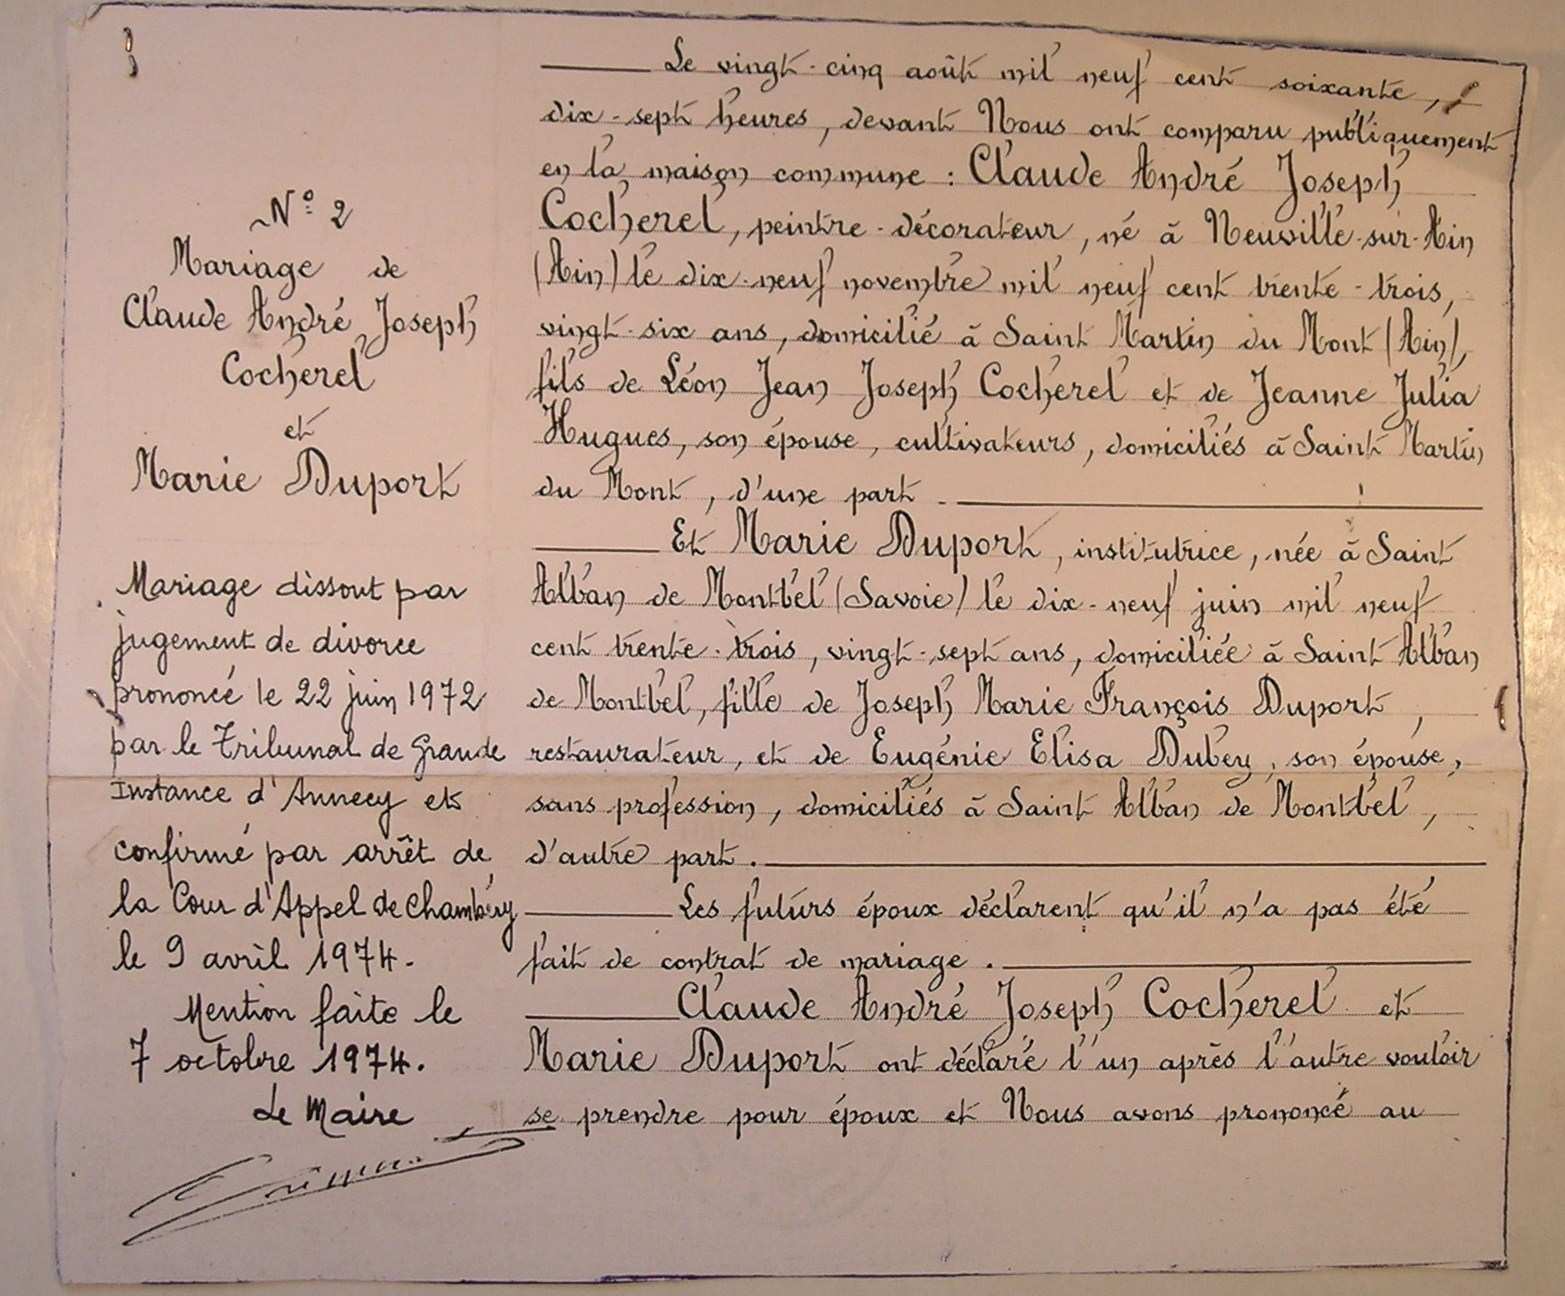 N° 2
Mariage de
Claude André Joseph
Cocherel
et
Marie Duport
Mariage dissout par
jugement de divorce
prononcé le 22 juin 1972
par le Tribunal de Grande
Instance d'Annecy et
confirmé par arrêt de
la Cour d'Appel de Chambéry
le 9 avril 1974.
Mention faite le
7 octobre 1974.
Le Maire
Le vingt-cinq août mil neuf cent soixante,
dix-sept heures, devant Nous ont comparu publiquement
en la maison commune : Claude André Joseph
Cocherel, peintre-décorateur, né à Neuville-sur-Ain
(Ain) le dix-neuf novembre mil neuf cent trente-trois,
vingt-six ans, domicilié à Saint Martin du Mont (Ain),
fils de Léon Jean Joseph Cocherel et de Jeanne Julia
Hugues, son épouse, cultivateurs, domiciliés à Saint Martin
du Mont, d'une part.
Et Marie Duport, institutrice, née à Saint
Alban de Montbel (Savoie) le dix-neuf juin mil neuf
cent trente-trois, vingt-sept ans, domiciliée à Saint Alban
de Montbel, fille de Joseph Marie François Duport,
restaurateur, et de Eugénie Elisa Dubey, son épouse,
sans profession, domiciliés à Saint Alban de Montbel,
d'autre part.
Les futurs époux déclarent qu'il n'a pas été
fait de contrat de mariage.
Claude André Joseph Cocherel et
Marie Duport ont déclaré l'un après l'autre vouloir
se prendre pour époux et Nous avons prononcé au